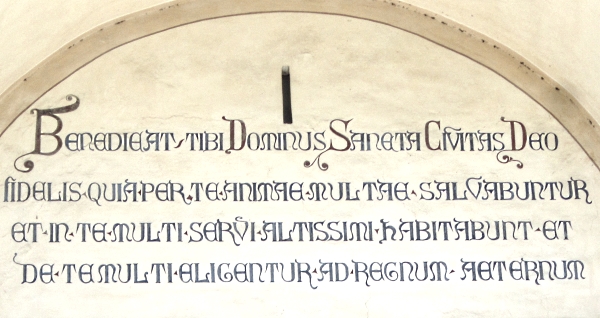 Benedicat tibi Dominus Sancta Civitas Deo
fidelis·quia·per·te·animae·multae·salvabuntur
et·in·te·multi·servi·altissimi·habitabunt·et
de·te multi·eligentur·ad·regnum·aeternum